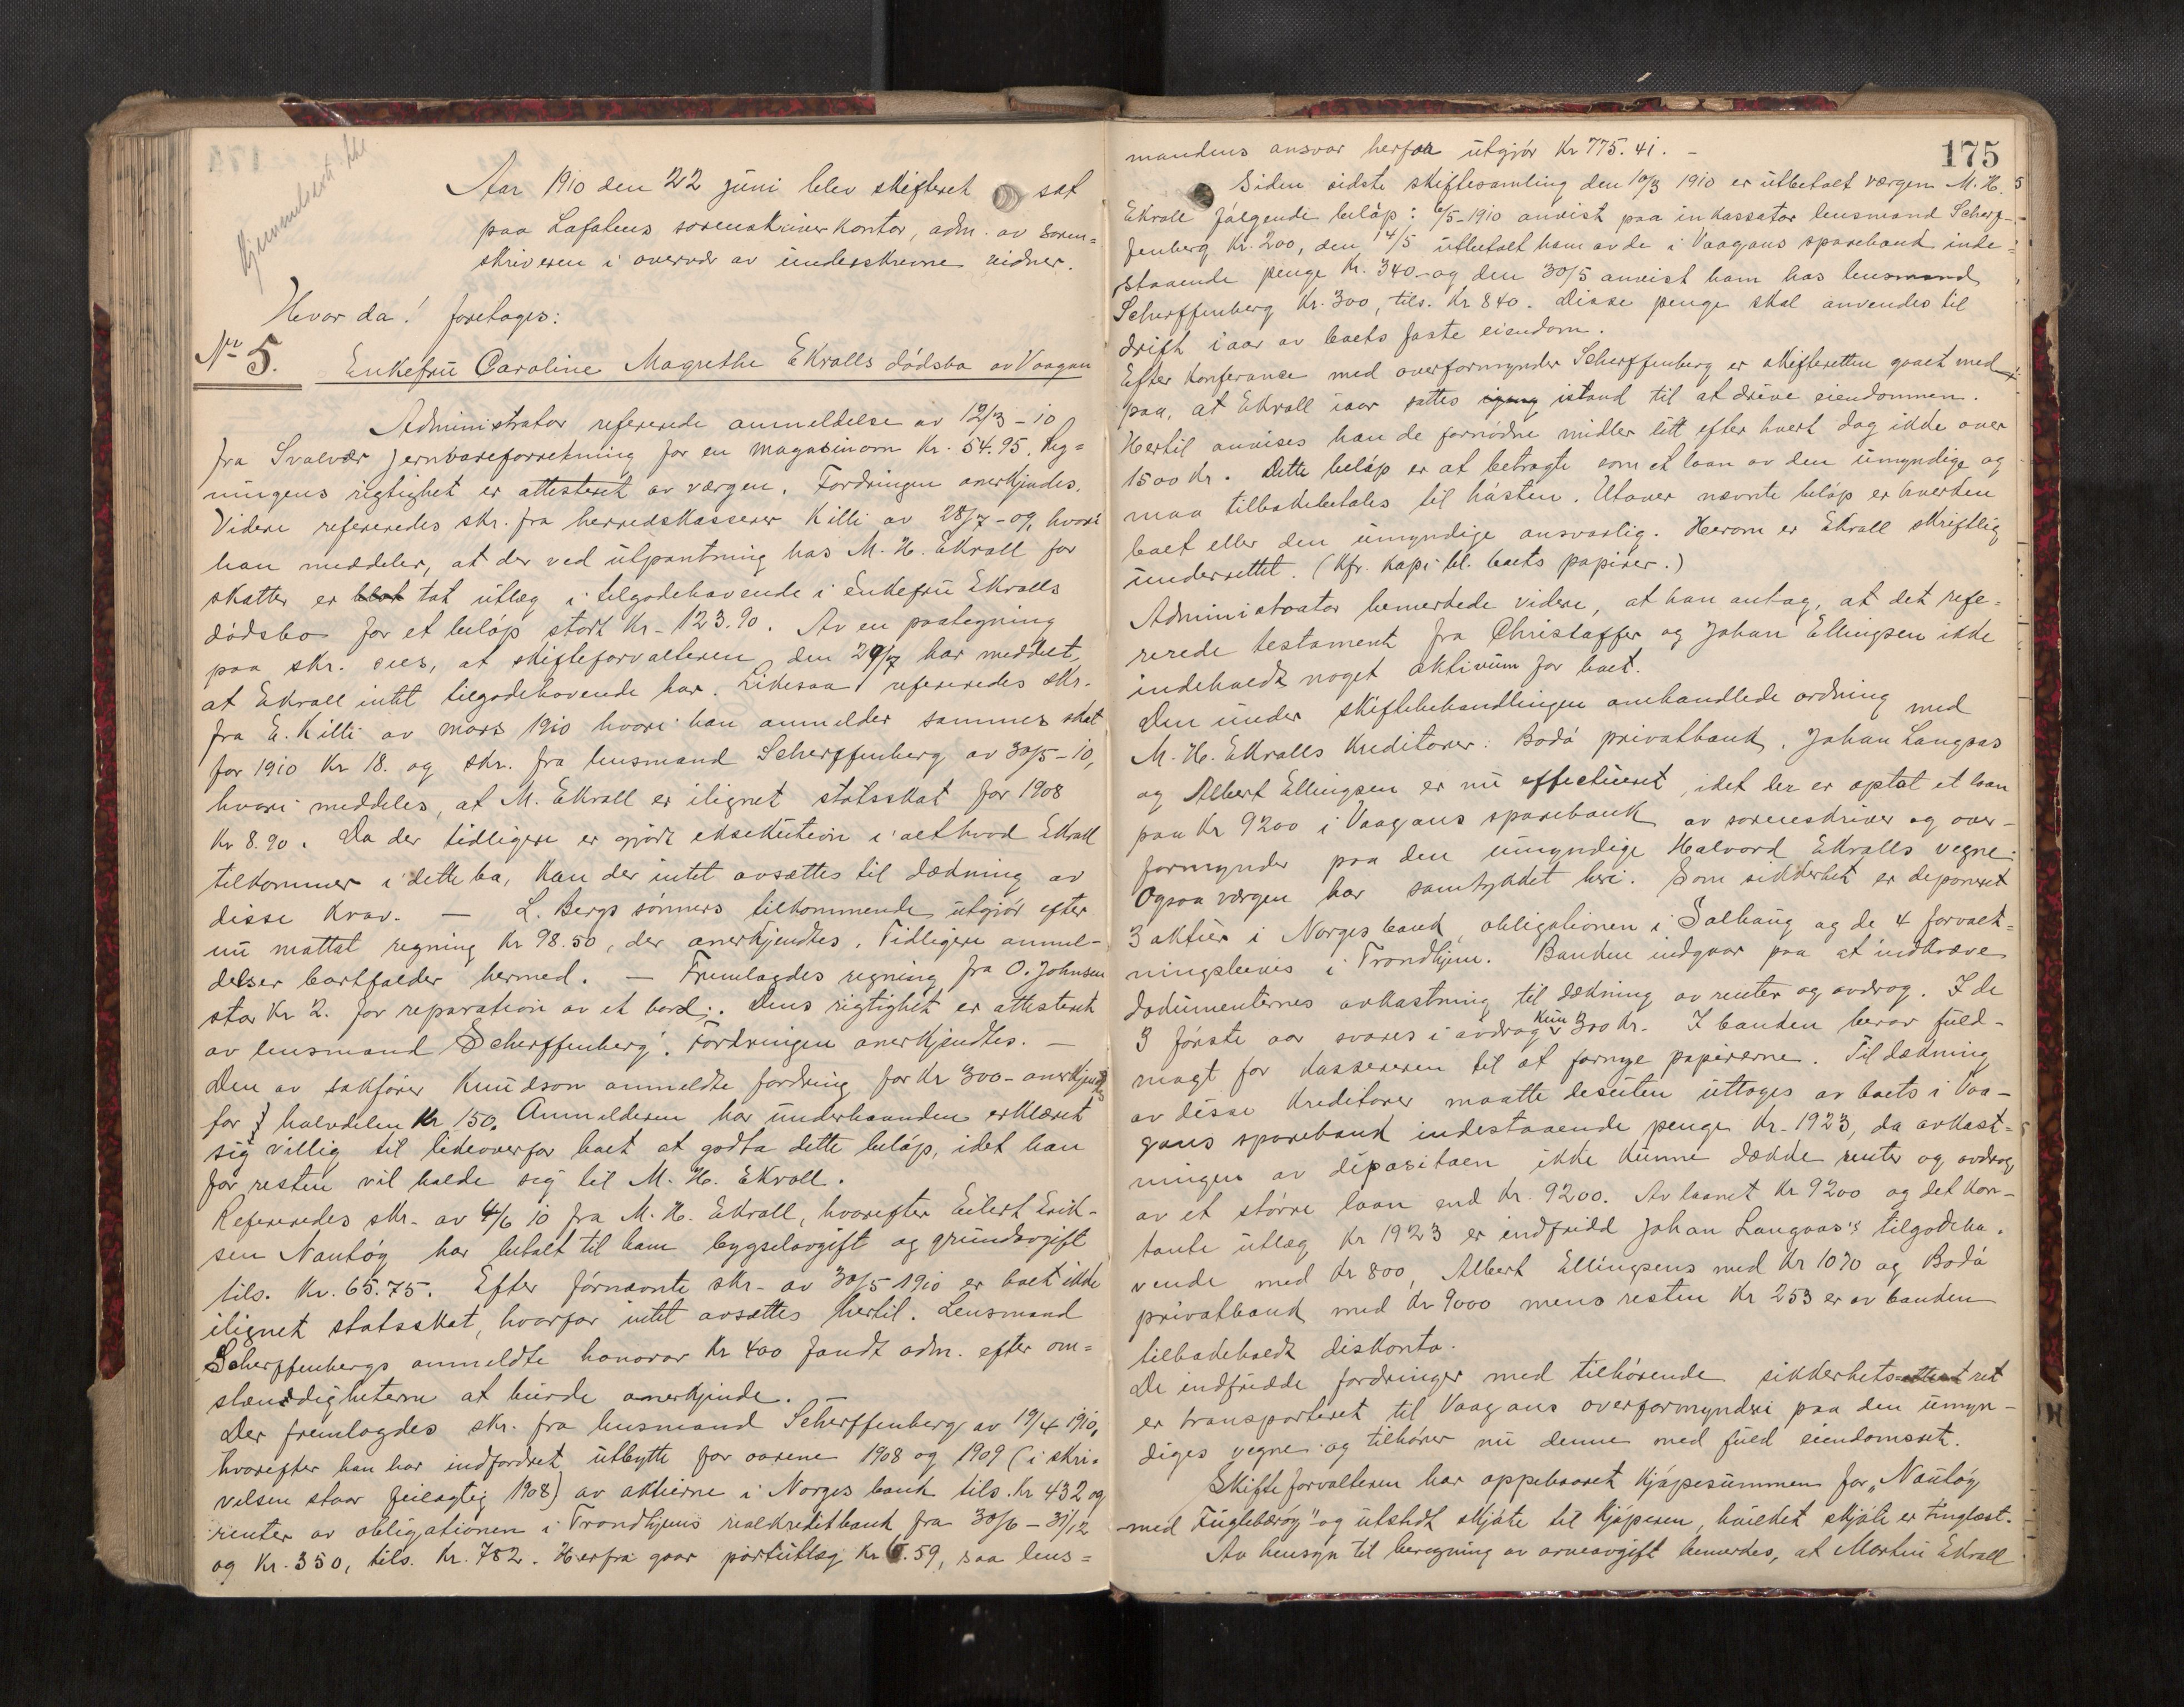 Aar 1910 den 22 juni blev skifteret sat
paa Lofotens sorenskriverkontor, adm. av soren=
skriveren i overvær av underskrevne vidner.
Hvor da! foretages:
No 5. Enkefru Caroline Magrethe Ekrolls dödsbo av Vaagan
Administrator refererede anmeldelse av 12/3-10
fra Svolvær jernvareforretning for en magasinovn Kr. 54.95. Reg=
ningens rigtighet er attesteret av værgen. Fordringen anerkjendes.
Videre refereredes skr. fra herredskasserer Killi av 28/7-09, hvori
han meddeler, at der ved utpantning hos M. H. Ekroll for
skatter er blot tat utlæg i tilgodehavende i enkefru Ekrolls
dödsbo for et belöp stort Kr. 123.90. Av en paategning
paa skr. sees, at skifteforvalteren den 29/7 har meddelt,
at Ekroll intet tilgodehavende har. Likesaa refereredes skr.
fra E. Killi av mars 1910 hvori han anmelder sammes skat
for 1910 Kr 18. og skr. fra lensmand Scherffenberg av 30/5-10,
hvori meddeles, at M. Ekroll er ilignet statsskat for 1908
Kr 8.90. Da der tidligere er gjort eksekution i alt hvad Ekroll
tilkommer i dette bo, kan der intet avsættes til dækning av
disse krav. — L. Bergs sönners tilkommende utgjör efter
nu mottat regning Kr 98.50, der anerkjendtes. Tidligere anmel-
delser bortfalder hermed. — Fremlagdes regning fra O. Johnsen
stor Kr 2. for reparation av et bord. Dens rigtighet er attesteret
av lensmand Scherffenberg. Fordringen anerkjendtes. —
Den av sakförer Knudson anmeldte fordring for Kr 300- anerkjendtes
for halvdelen Kr 150. Anmelderen har underhaanden erklæret
sig villig til likeoverfor boet at godta dette belöp, idet han
for resten vil holde sig til M. H. Ekroll.
Refereredes skr. av 4/6 10 fra M. H. Ekroll, hvorefter Eilert Erik-
sen Nautöy har betalt til ham bygselavgift og grundavgift
tils. Kr. 65.75. Efter förnævnte skr. av 30/5 1910 er boet ikke
ilignet statsskat, hvorfor intet avsættes hertil. Lensmand
Scherffenbergs anmeldte honorar Kr 400 fandt adm. efter om=
stændigheterne at burde anerkjende. —
Der fremlagdes skr. fra lensmand Scherffenberg av 19/4 1910,
hvorefter han har indfordret utbytte for aarene 1908 og 1909 (i skri-
velsen staar feilagtig 1908) av aktierne i Norges bank tils. Kr 432 og
renter av obligationen i Trondhjems realkreditbank fra 30/6 - 31/12
og Kr. 350, tils. Kr. 782. Herfra gaar portoutlæg Kr 6.59, saa lens=
175
mandens ansvar herfor utgjör Kr 775.41. -
Siden sidste skiftesamling den 10/3 1910 er utbetalt værgen M. H.
Ekroll fölgende belöp: 6/5-1910 anvist paa inkassator lensmand Scherf-
fenberg Kr. 200, den 14/5 utbetalt ham av de i Vaagans sparebank inde=
staaende penge Kr. 340- og den 30/5 anvist ham hos lensmand
Scherffenberg Kr. 300, tils. Kr 840. Disse penge skal anvendes til
drift i aar av boets faste eiendom.
Efter konferance med overformynder Scherffenberg er skifteretten gaaet med
paa, at Ekroll iaar sættes igang istand til at drive eiendommen.
Hertil anvises han de fornödne midler litt efter hvert dog ikke over
1500 Kr. Dette belöp er at betragte som et laan av den umyndige og
maa tilbakebetales til hösten. Utover nævnte belöp er hverken
boet eller den umyndige ansvarlig. Herom er Ekroll skriftlig
underrettet. (Kfr. kopi bl. boets papirer.)
Administrator bemerkede videre, at han antog, at det refe=
rerede testament fra Christoffer og Johan Ellingsen ikke
indeholdt noget aktivum for boet.
Den under skiftebehandlingen omhandlede ordning med
M. H. Ekrolls kreditorer: Bodö privatbank, Johan Langaas
og Albert Ellingsen er nu effectueret, idet der er optat et laan
paa Kr 9200 i Vaagans sparebank av sorenskriver og over-
formynder paa den umyndige Halvord Ekrolls vegne.
Ogsaa værgen har samtykket heri. Som sikkerhet er deponeret
3 aktier i Norges bank, obligationen i Solhaug og de 4 forvalt=
ningsbevis i Trondhjem. Banken indgaar paa at indkræve
dokumenternes avkastning til dækning av renter og avdrag. I de
3 förste aar svares i avdrag kun 300 Kr. I banken beror fuld-
magt for kassereren til at fornye papirerne. Til dækning
av disse kreditorer maatte desuten uttages av boets i Vaa-
gans sparebank indestaaende penge Kr. 1923, da avkast=
ningen av depositaen ikke kunne dække renter og avdrag
av et större laan end Kr. 9200. Av laanet Kr 9200 og det kon-
tante utlæg Kr 1923 er indfridd Johan Langaas's tilgodeha-
vende med Kr 800, Albert Ellingsens med Kr 1070 og Bodö
privatbank med Kr 9000 mens resten Kr 253 er av banken
tilbakeholdt diskonto.
De indfridde fordringer med tilhörende sikkerhets ret
er transporteret til Vaagans overformynderi paa den umyn-
diges vegne og tilhörer nu denne med fuld eiendomsret.
Skifteforvalteren har oppebaaret kjöpesummen for "Nautöy
med Fugleberöy" og utstedt skjöte til kjöperen, hvilket skjöte er tinglæst.
Av hensyn til beregning av arveavgift bemerkes, at Martin Ekroll